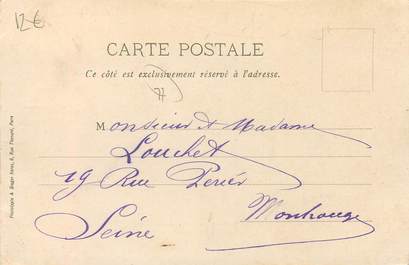 12€
CARTE POSTALE
Ce côté est exclusivement réservé à l'adresse.
Monsieur et Madame
Louchet
19 Rue Perier
Montrouge
Seine